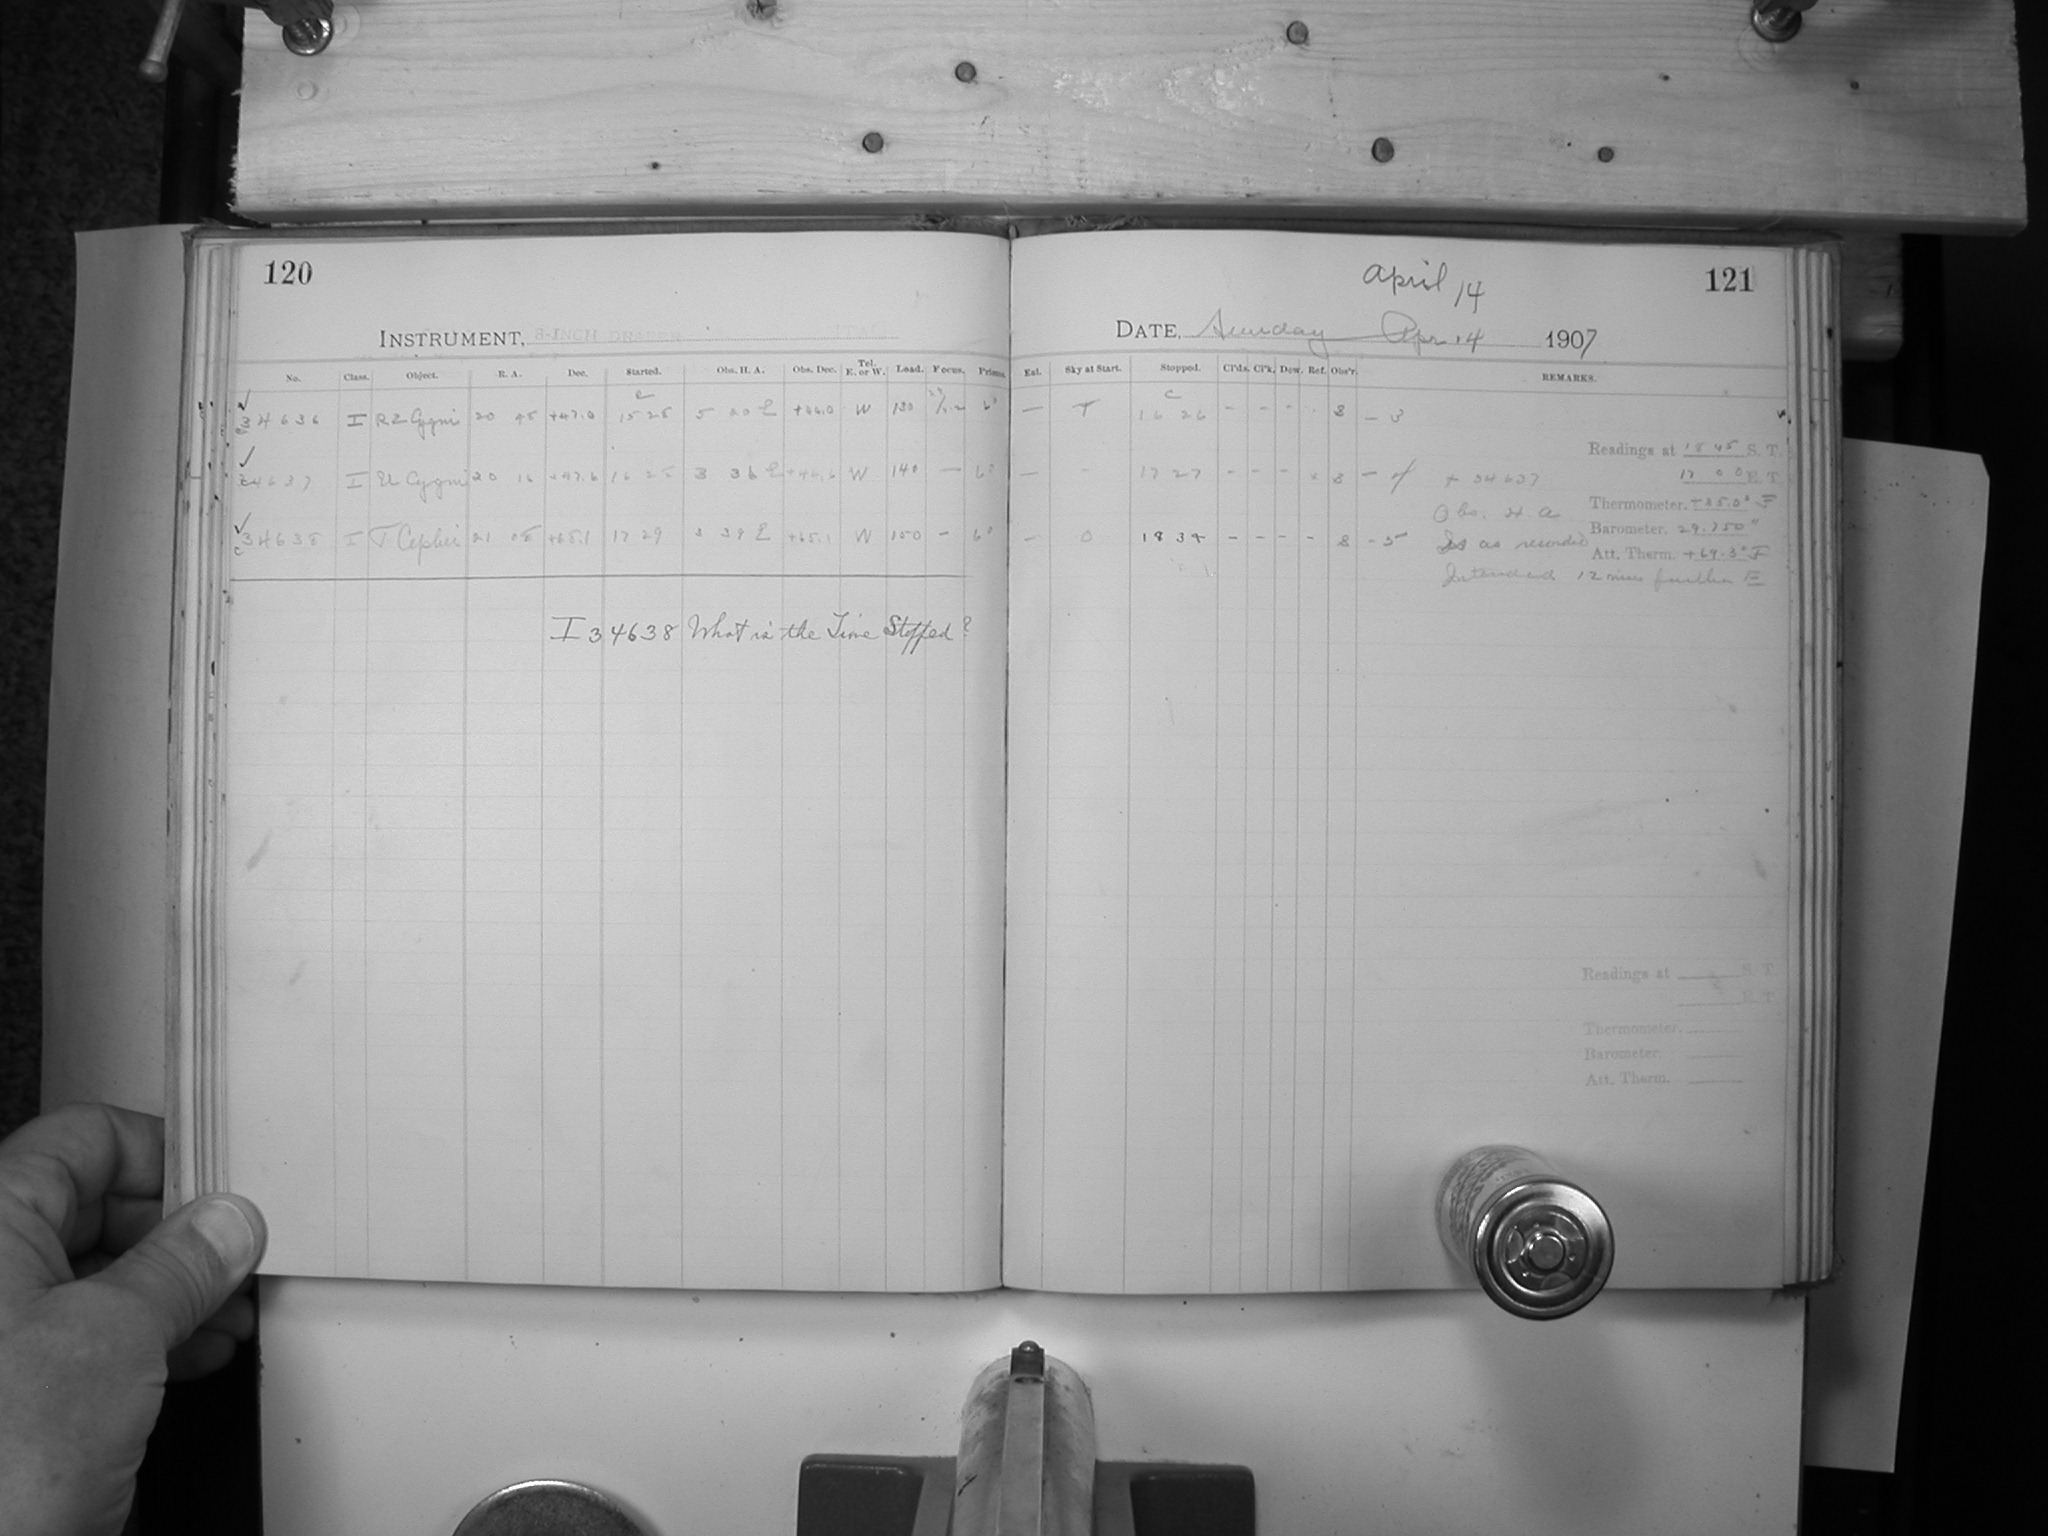 120
INSTRUMENT, 8-INCH DRAPER
No. Class. Object. R. A. Dec. Started. Obs. H. A. Obs. Dec. Tel. E. or W. Load. Focus. Prisms.
34636 I RZ Cygni 20 +47.0 15 25 5 20 E +46.0 W 130 6°
34637 I U Cygni 20 16 +47.6 3 36 E W 140 — 6°
34638 I T Cephei 21 08 +65.1 17 29 3 39 E +65.1 W 150 — 6°
I 34638 What is the Time Stopped?
April 14
121
DATE, Sunday Apr 14 1907
Ext. Sky at Start. Stopped. Cl'ds. Cl'k. Dew. Ref. Obs'r. REMARKS.
— T 16 26 - - - 8 - 3
— - 17 27 - - - 8 - 4
— 0 18 34 - - - - 8 - 5
+ 34637
Obs. H. A
as recorded
Intended 12 mins further E
Readings at 18 45 S. T.
17 00 E. T.
Thermometer. +35.0° F
Barometer. 29.750"
Att. Therm. +69.3° F
Readings at S. T.
E. T.
Thermometer.
Barometer.
Att. Therm.